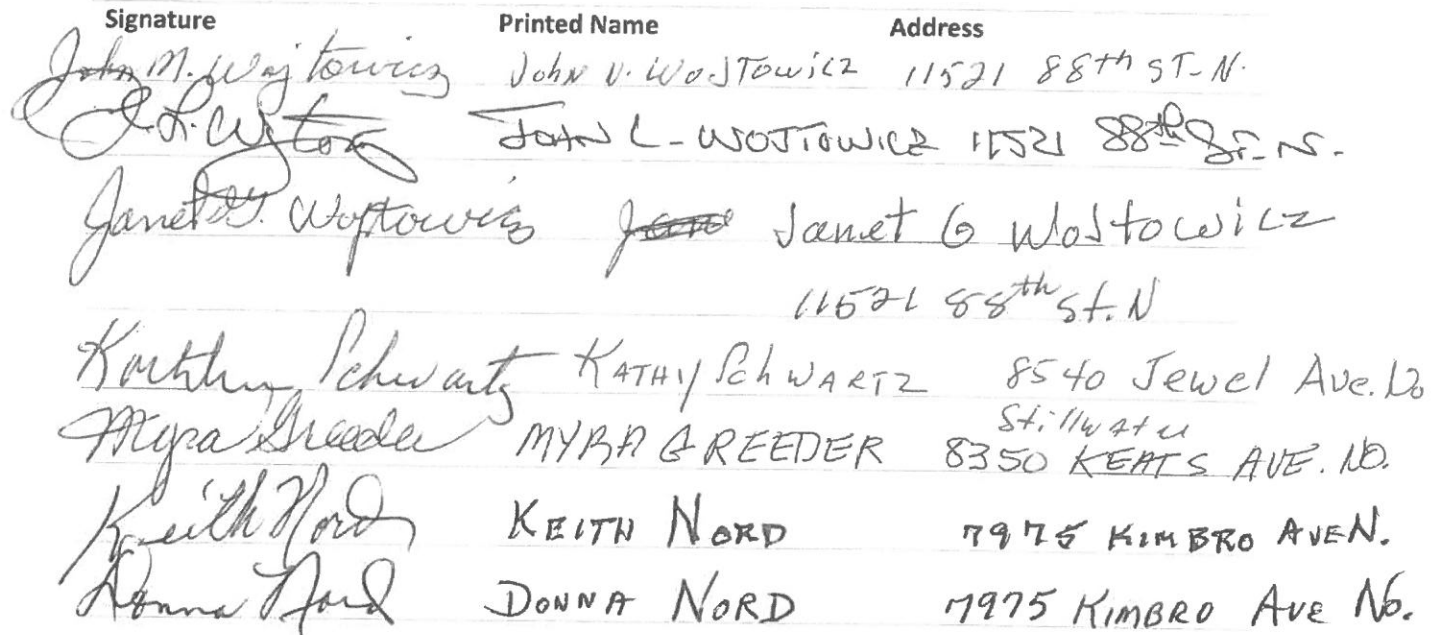 Signature Printed Name Address
John M. Wojtowicz John V. WOJTOWICZ 11521 88th ST-N.
J.L. JOHN L-WOJTOWICZ 11521 88th ST-N.
Janet G. Wojtowicz Janet G WoJtowicz
11521 88th St. N
Schwartz KATHY SchWARTZ 8540 Jewel Ave. No
Stillwater
Myra Greeder MYRA GREEDER 8350 KEATS AVE. NO.
Keith Nord KEITH NORD 7975 KIMBRO AVE N.
Donna Nord DONNA NORD 7975 KIMBRO AVE NO.